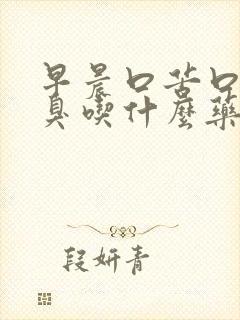 早晨口苦口
臭喫什麼藥
段妍青